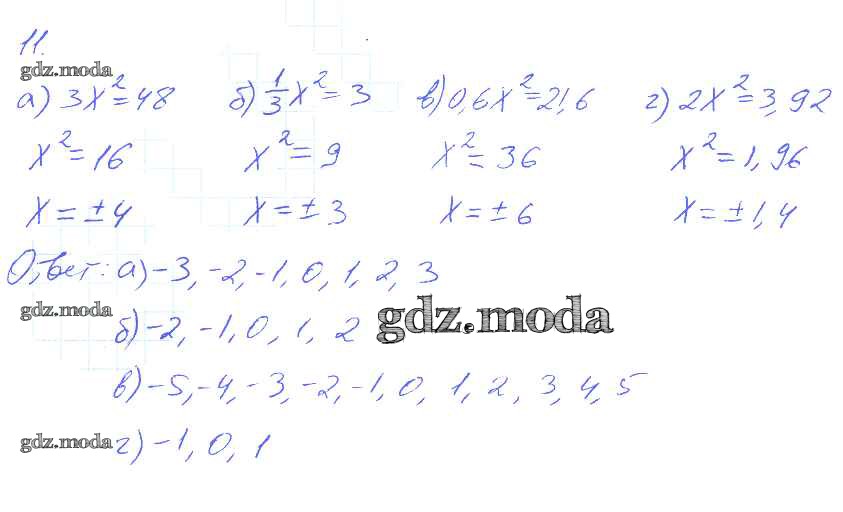 11.
gdz.moda
а) 3x²=48 б) 1/3 x²=3 в) 0,6x²=21,6 г) 2x²=3,92
x²=16 x²=9 x²=36 x²=1,96
x=±4 x=±3 x=±6 x=±1,4
Ответ: а) -3, -2, -1, 0, 1, 2, 3
gdz.moda
б) -2, -1, 0, 1, 2 gdz.moda
в) -5, -4, -3, -2, -1, 0, 1, 2, 3, 4, 5
gdz.moda г) -1, 0, 1